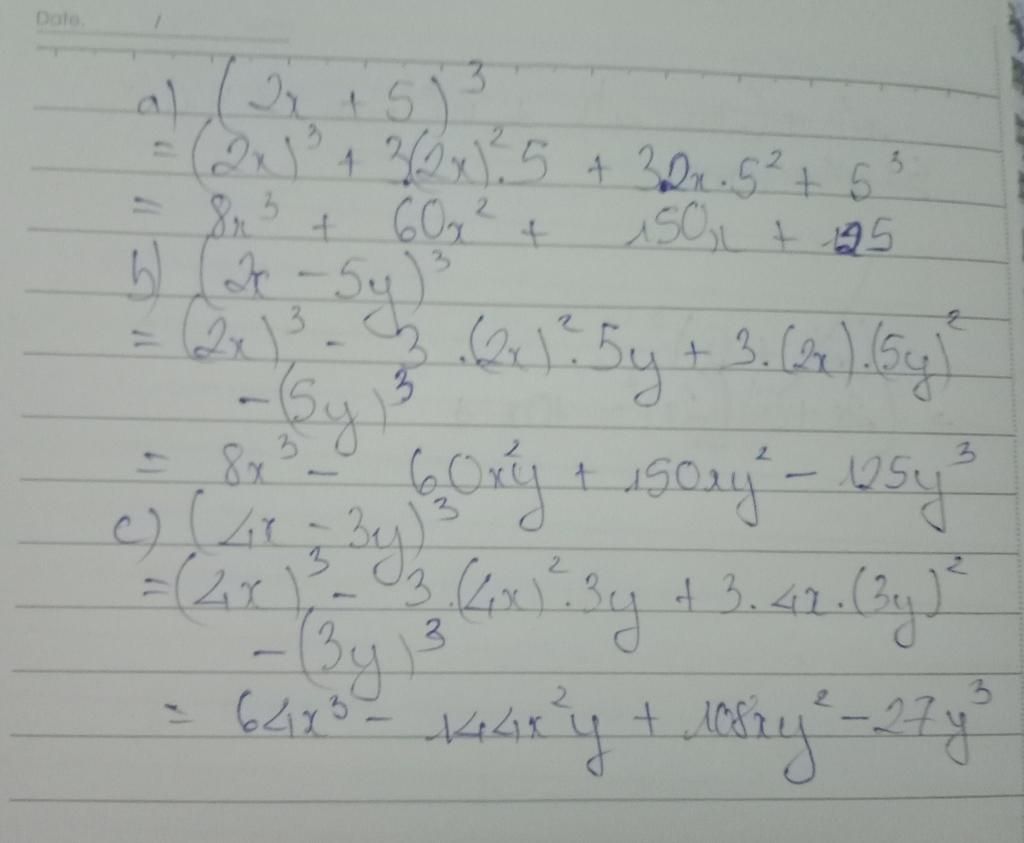 Date. /
a) (2x + 5)³
= (2x)³ + 3(2x)².5 + 3.2x.5² + 5³
= 8x³ + 60x² + 150x + 125
b) (2x - 5y)³
= (2x)³ - 3.(2x)².5y + 3.(2x).(5y)²
-(5y)³
= 8x³ - 60x²y + 150xy² - 125y³
c) (4x - 3y)³
= (4x)³ - 3.(4x)².3y + 3.4x.(3y)²
-(3y)³
= 64x³ - 144x²y + 108xy² - 27y³